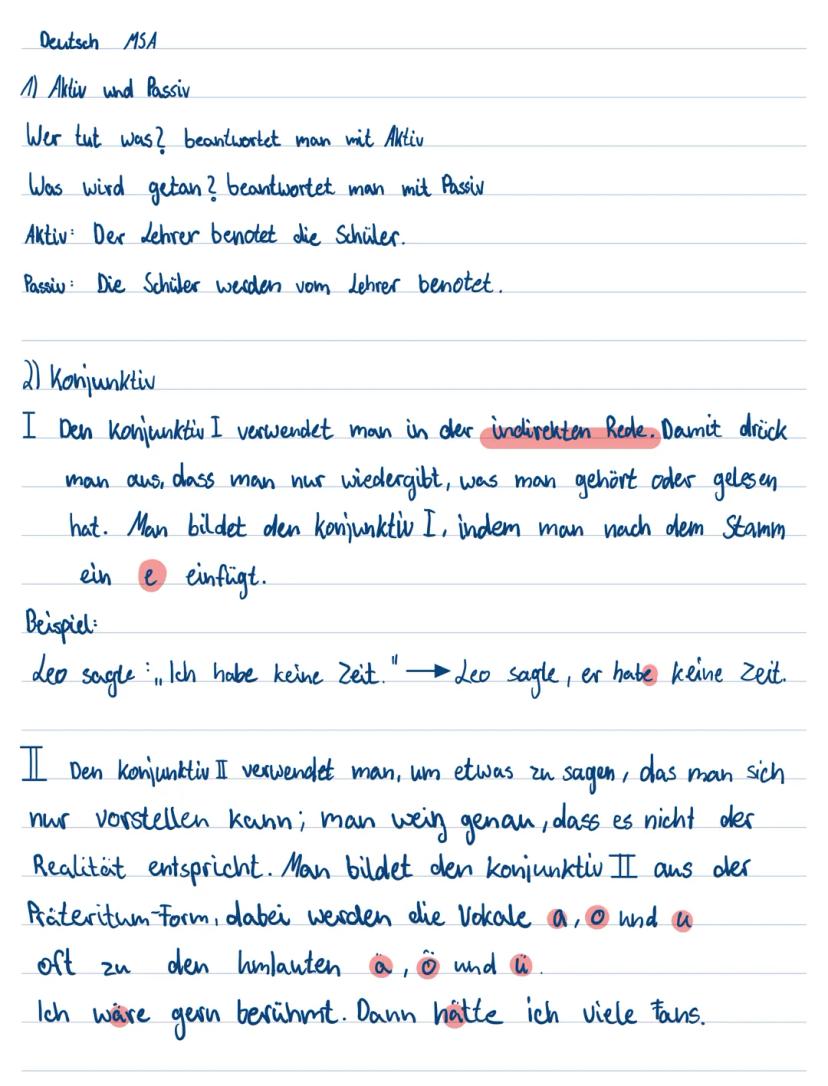 Deutsch MSA
1) Aktiv und Passiv
Wer tut was? beantwortet man mit Aktiv
Was wird getan? beantwortet man mit Passiv
Aktiv: Der Lehrer benotet die Schüler.
Passiv: Die Schüler werden vom Lehrer benotet.
2) Konjunktiv
I Den Konjunktiv I verwendet man in der indirekten Rede. Damit drück
man aus, dass man nur wiedergibt, was man gehört oder gelesen
hat. Man bildet den Konjunktiv I, indem man nach dem Stamm
ein e einfügt.
Beispiel:
Leo sagte: „Ich habe keine Zeit." → Leo sagte, er habe keine Zeit.
II Den Konjunktiv II verwendet man, um etwas zu sagen, das man sich
nur vorstellen kann; man weiß genau, dass es nicht der
Realität entspricht. Man bildet den Konjunktiv II aus der
Präteritum-Form, dabei werden die Vokale a, o und u
oft zu den Umlauten ä, ö und ü.
Ich wäre gern berühmt. Dann hätte ich viele Fans.